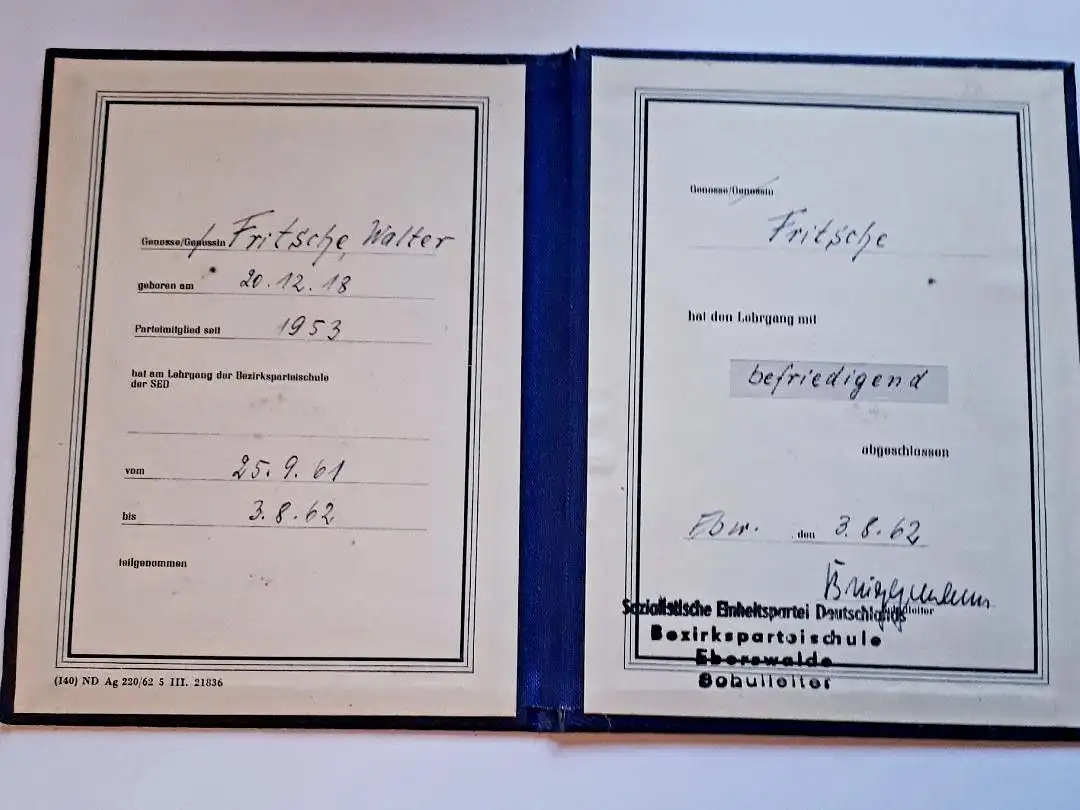 Genosse/Genossin Fritsche, Walter
geboren am 20.12.18
Parteimitglied seit 1953
hat am Lehrgang der Bezirksparteischule
der SED
vom 25.9.61
bis 3.8.62
teilgenommen
(140) ND Ag 220/62 5 III. 21836
Genosse/Genossin
Fritsche
hat den Lehrgang mit
befriedigend
abgeschlossen
Ebw. den 3.8.62
Sozialistische Einheitspartei Deutschlands
Bezirksparteischule
Eberswalde
Schulleiter